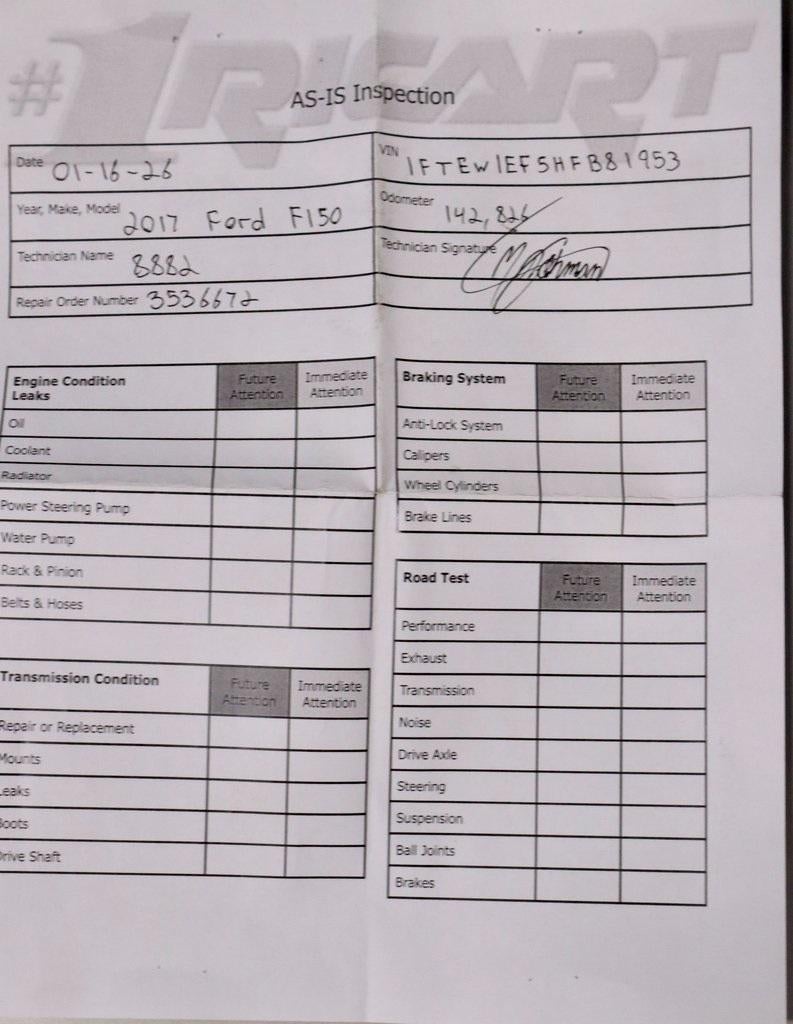 #1 RICART
AS-IS Inspection
Date 01-16-26
VIN 1FTEW1EF5HFB81953
Year, Make, Model 2017 Ford F150
Odometer 142,826
Technician Name 8882
Technician Signature
Repair Order Number 3536672
Engine Condition Leaks Future Attention Immediate Attention
Oil
Coolant
Radiator
Power Steering Pump
Water Pump
Rack & Pinion
Belts & Hoses
Transmission Condition Future Attention Immediate Attention
Repair or Replacement
Mounts
Leaks
Boots
Drive Shaft
Braking System Future Attention Immediate Attention
Anti-Lock System
Calipers
Wheel Cylinders
Brake Lines
Road Test Future Attention Immediate Attention
Performance
Exhaust
Transmission
Noise
Drive Axle
Steering
Suspension
Ball Joints
Brakes